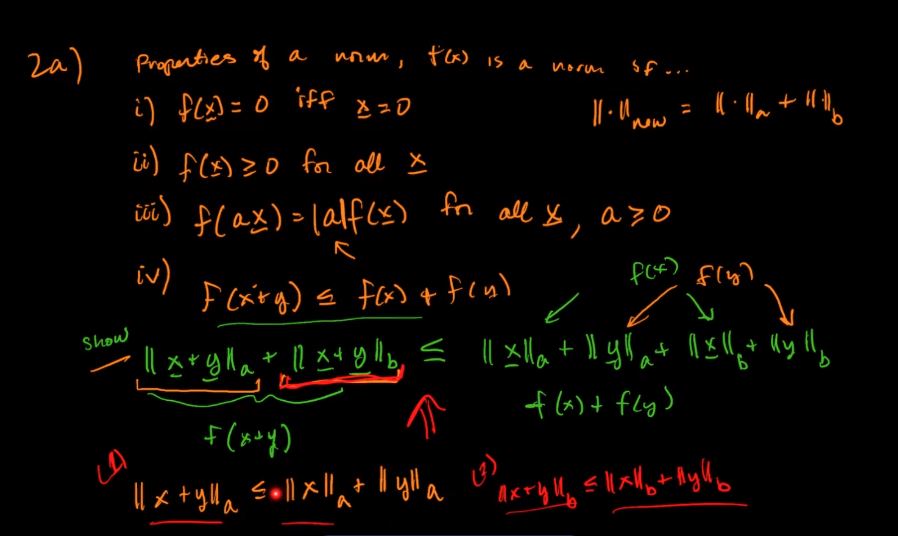 2a) Properties of a norm, f(x) is a norm if...
i) f(x) = 0 iff x = 0
||·||new = ||·||a + ||·||b
ii) f(x) ≥ 0 for all x
iii) f(ax) = |a|f(x) for all x, a ≥ 0
iv) f(x+y) ≤ f(x) + f(y)
f(x) f(y)
show ||x+y||a + ||x+y||b ≤ ||x||a + ||y||a + ||x||b + ||y||b
f(x+y)
f(x) + f(y)
(1) ||x+y||a ≤ ||x||a + ||y||a
(2) ||x+y||b ≤ ||x||b + ||y||b